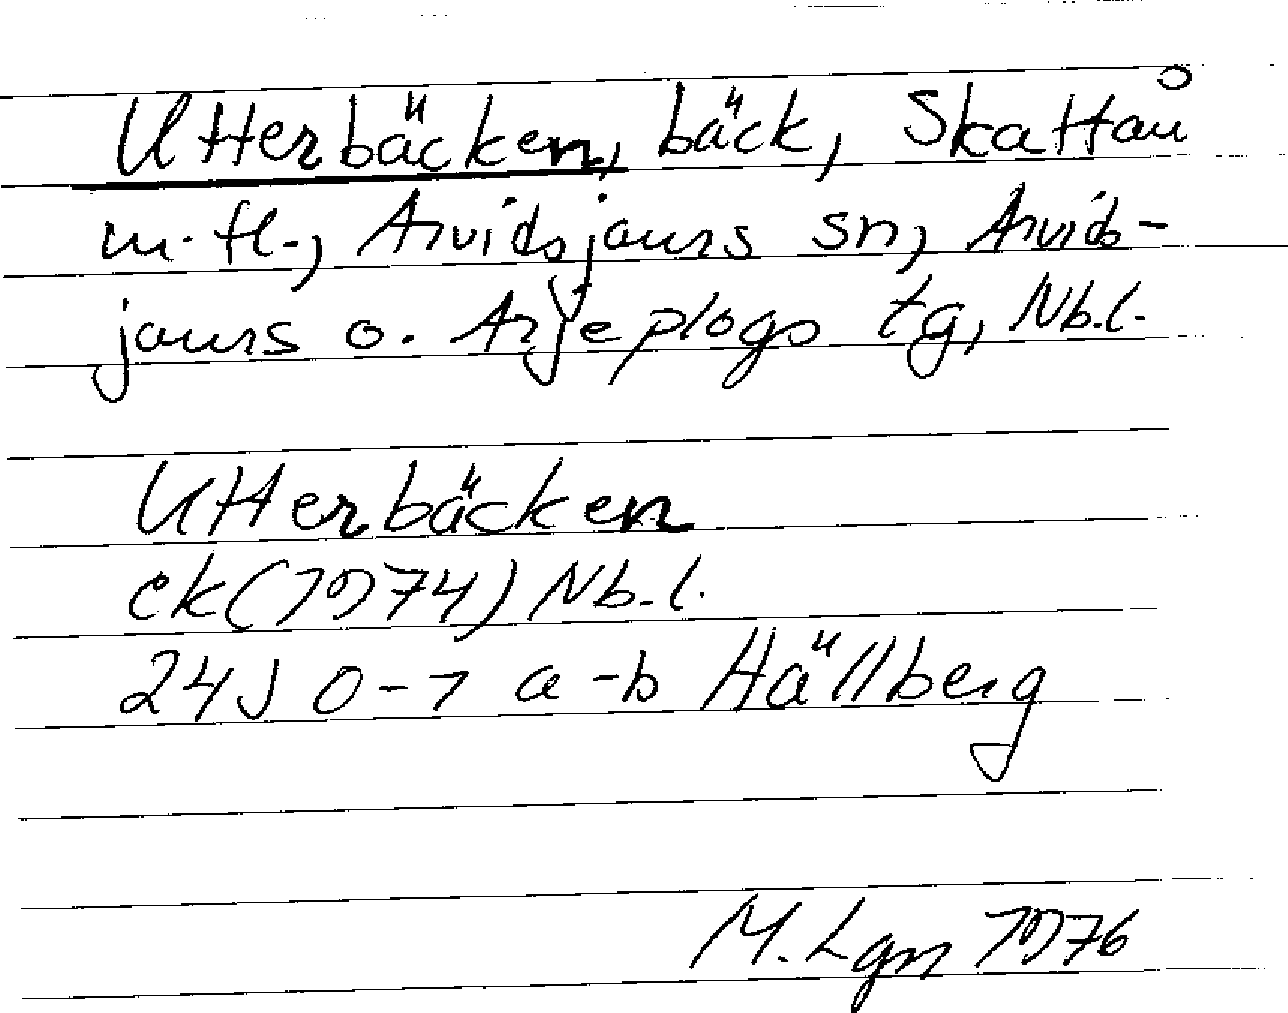 Utterbäcken, bäck, Skattån
m. fl., Arvidsjaurs sn, Arvids-
jaurs o. Arjeplogs tg, Nb.l.
Utterbäcken
ek (1974) Nb.l.
24J 0-1 a-b Hällberg
M. Lgn 1976